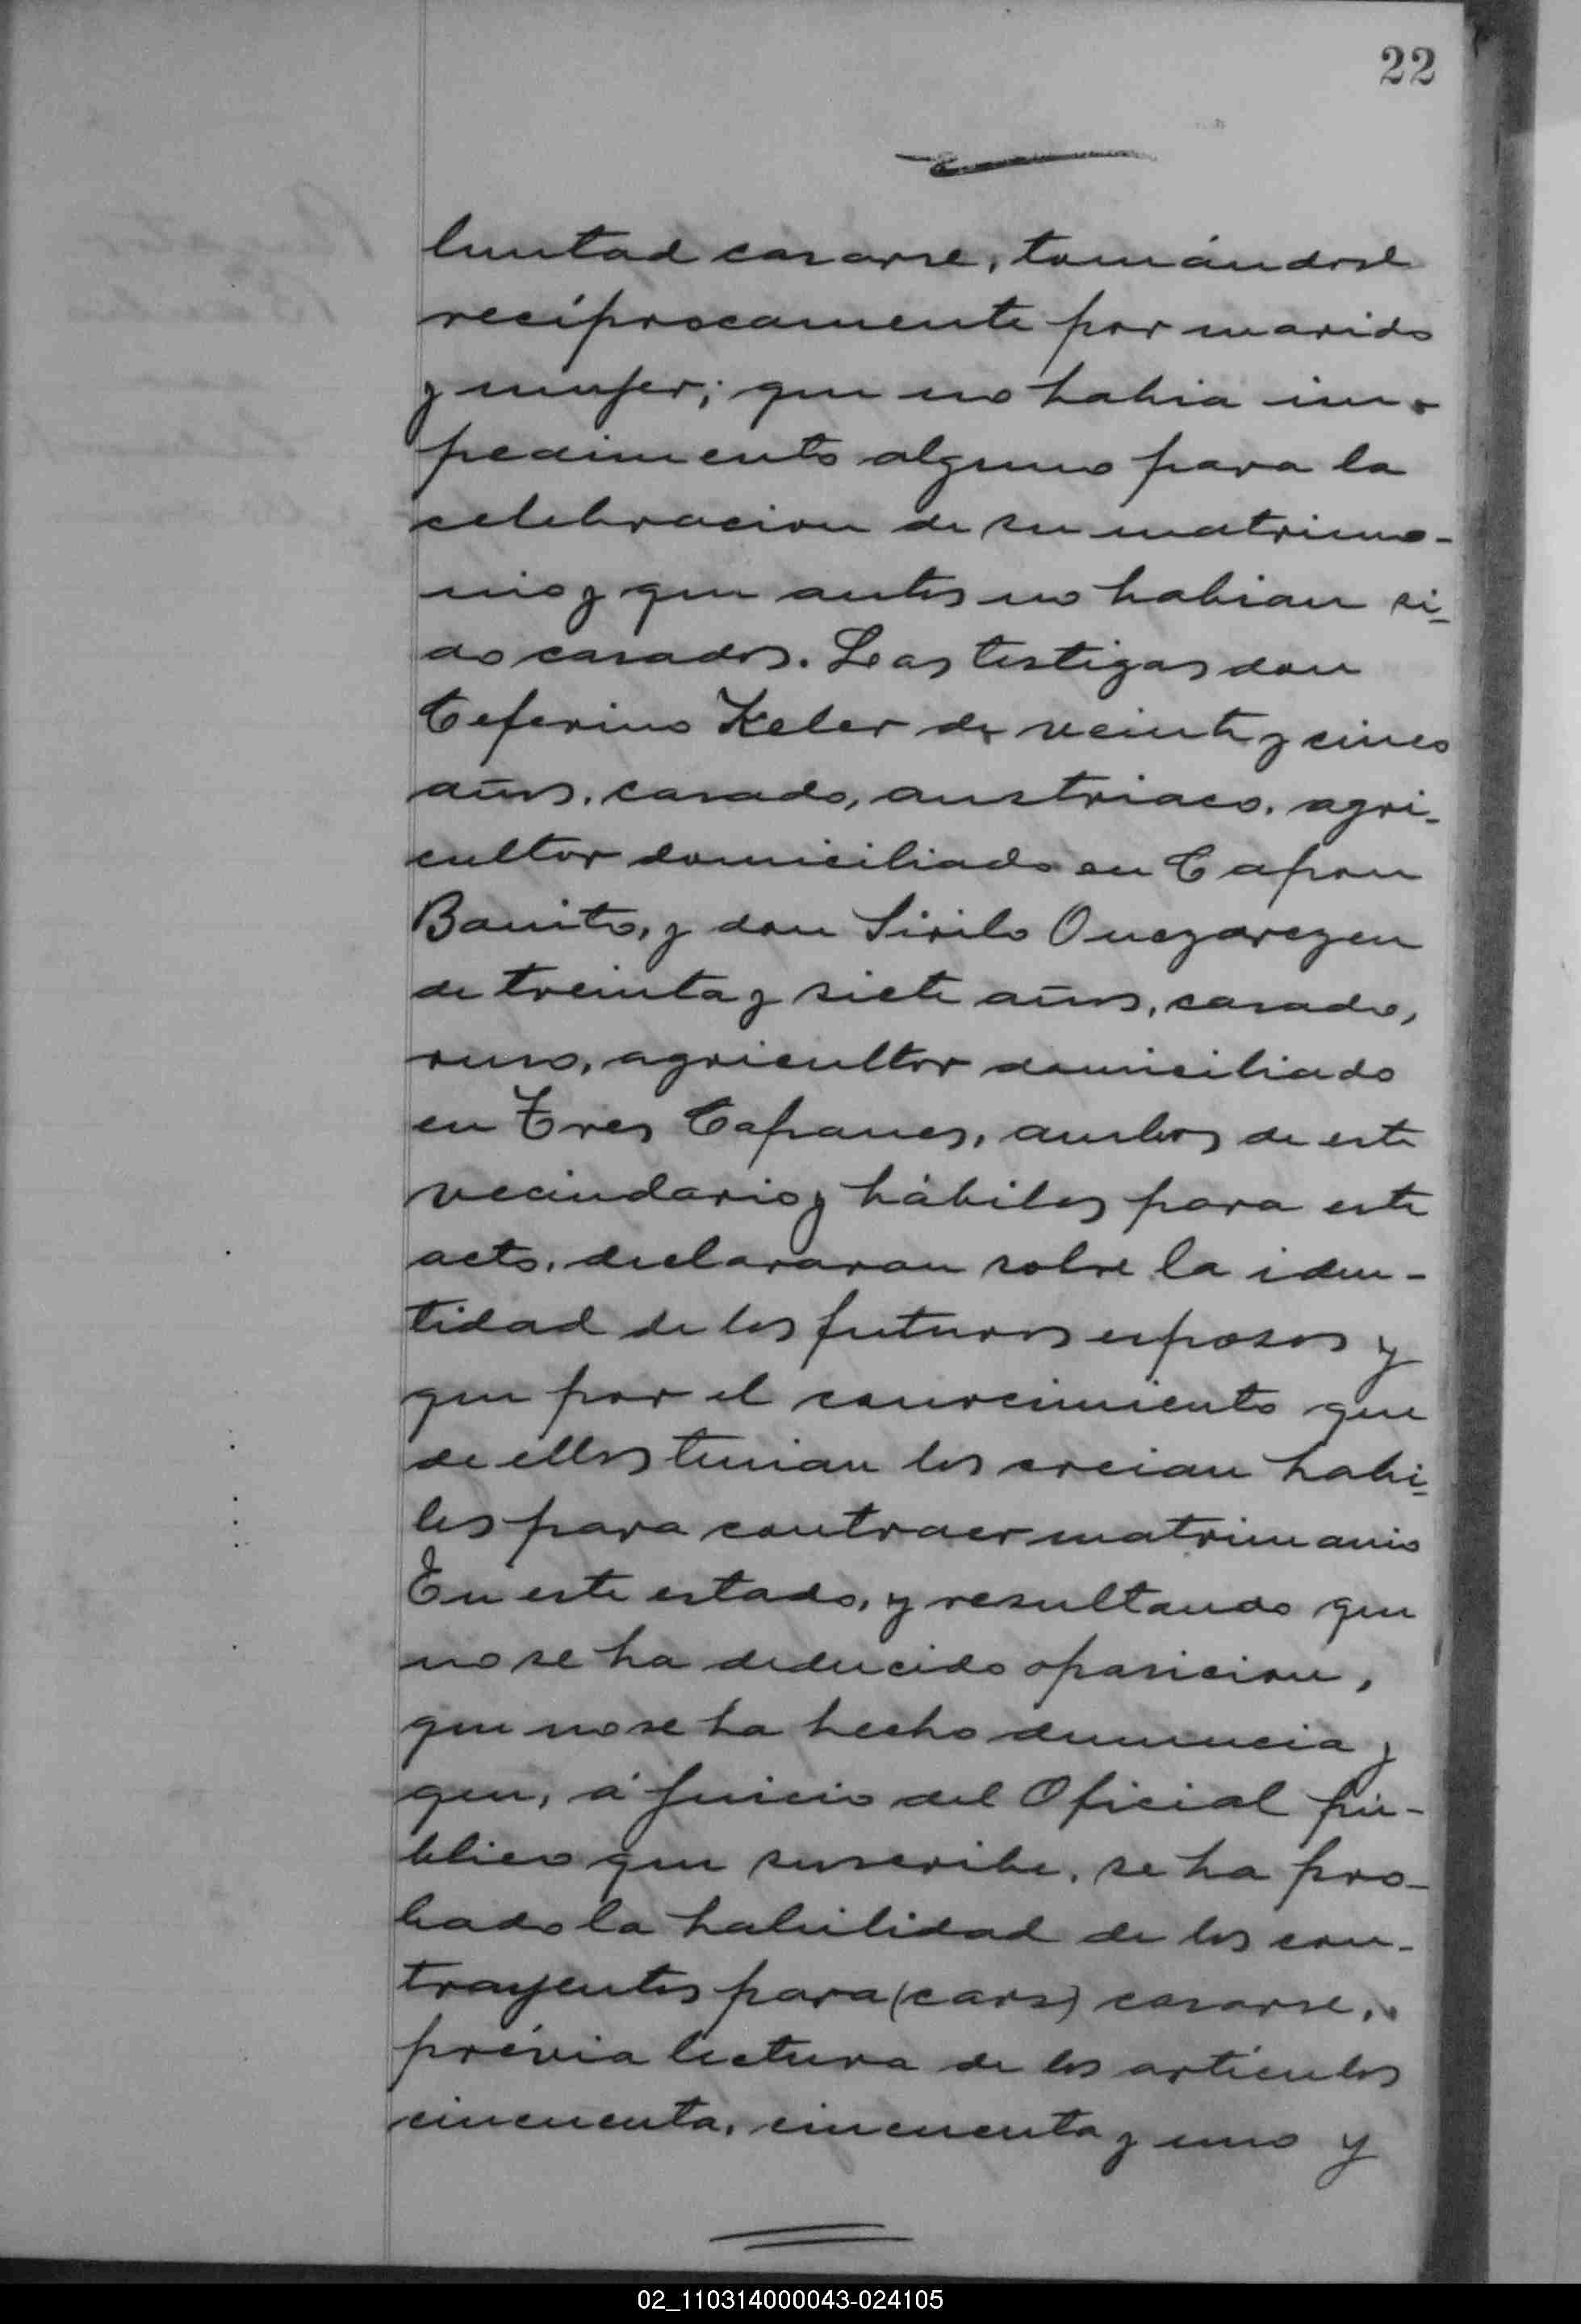 22
luntad casarse, tomándose
recíprocamente por marido
y mujer; que no habia im-
pedimento alguno para la
celebracion de su matrimo-
nio y que antes no habian si-
do casados. Los testigos don
Ceferino Keler de veinte y cinco
años, casado, austriaco, agri-
cultor domiciliado en Capon
Bonito, y don Sirilo
de treinta y siete años, casado,
ruso, agricultor domiciliado
en Tres Capones, ambos de este
vecindario y hábiles para este
acto, declararon sobre la iden-
tidad de los futuros esposos y
que por el conocimiento que
de ellos tenian los creian habi-
les para contraer matrimonio
En este estado, y resultando que
no se ha deducido oposicion,
que no se ha hecho denuncia y
que, á juicio del Oficial pú-
blico que suscribe, se ha pro-
bado la habilidad de los con-
trayentes para (cars) casarse,
prévia lectura de los artículos
cincuenta, cincuenta y uno y
02_110314000043-024105